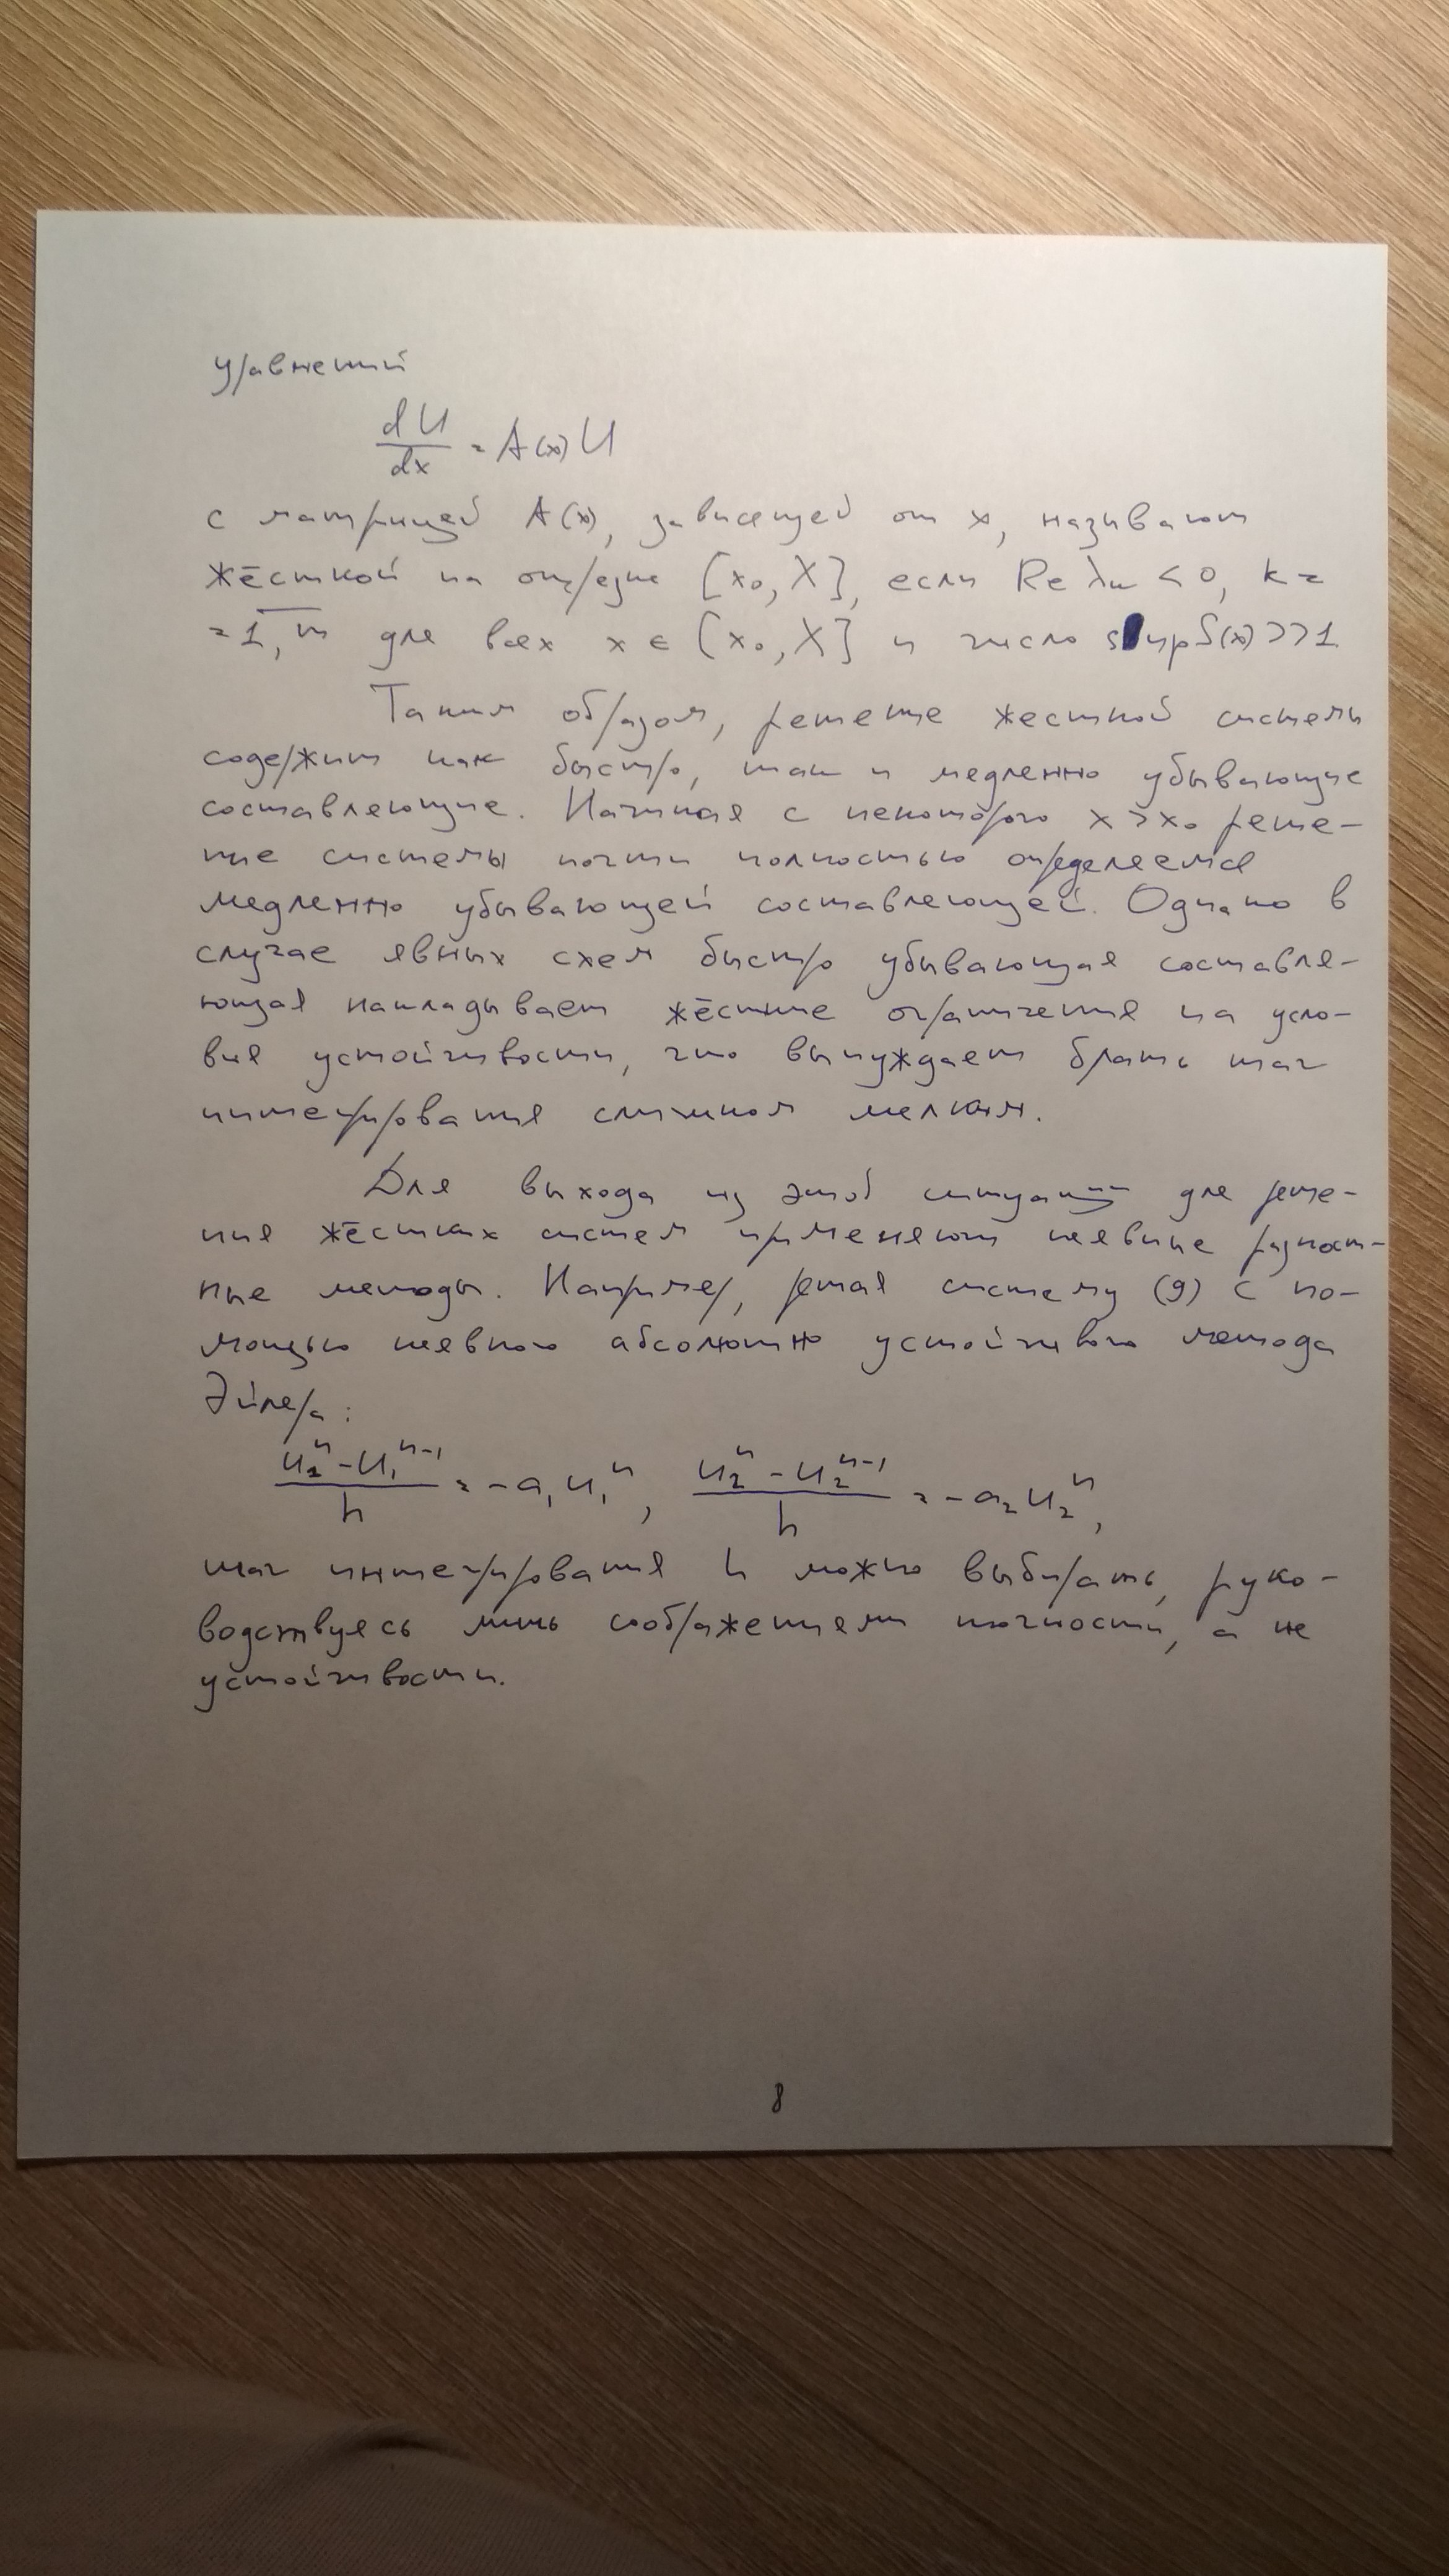 уравнений
dU/dx = A(x) U
с матрицей A(x), зависящей от x, называют
жёсткой на отрезке [x₀, X], если Re λₖ < 0, k =
= 1, m для всех x ∈ [x₀, X] и число sup S(x) >> 1.
Таким образом, решение жесткой системы
содержит как быстро, так и медленно убывающие
составляющие. Начиная с некоторого x > x₀ реше-
ние системы почти полностью определяется
медленно убывающей составляющей. Однако в
случае явных схем быстро убывающая составля-
ющая накладывает жёсткие ограничения на усло-
вия устойчивости, что вынуждает брать шаг
интегрирования слишком мелким.
Для выхода из этой ситуации для реше-
ния жёстких систем применяют неявные разност-
ные методы. Например, решая систему (9) с по-
мощью неявного абсолютно устойчивого метода
Эйлера:
(u₁ⁿ - u₁ⁿ⁻¹)/h = -a₁u₁ⁿ, (u₂ⁿ - u₂ⁿ⁻¹)/h = -a₂u₂ⁿ,
шаг интегрирования h можно выбирать, руко-
водствуясь лишь соображениями точности, а не
устойчивости.
8